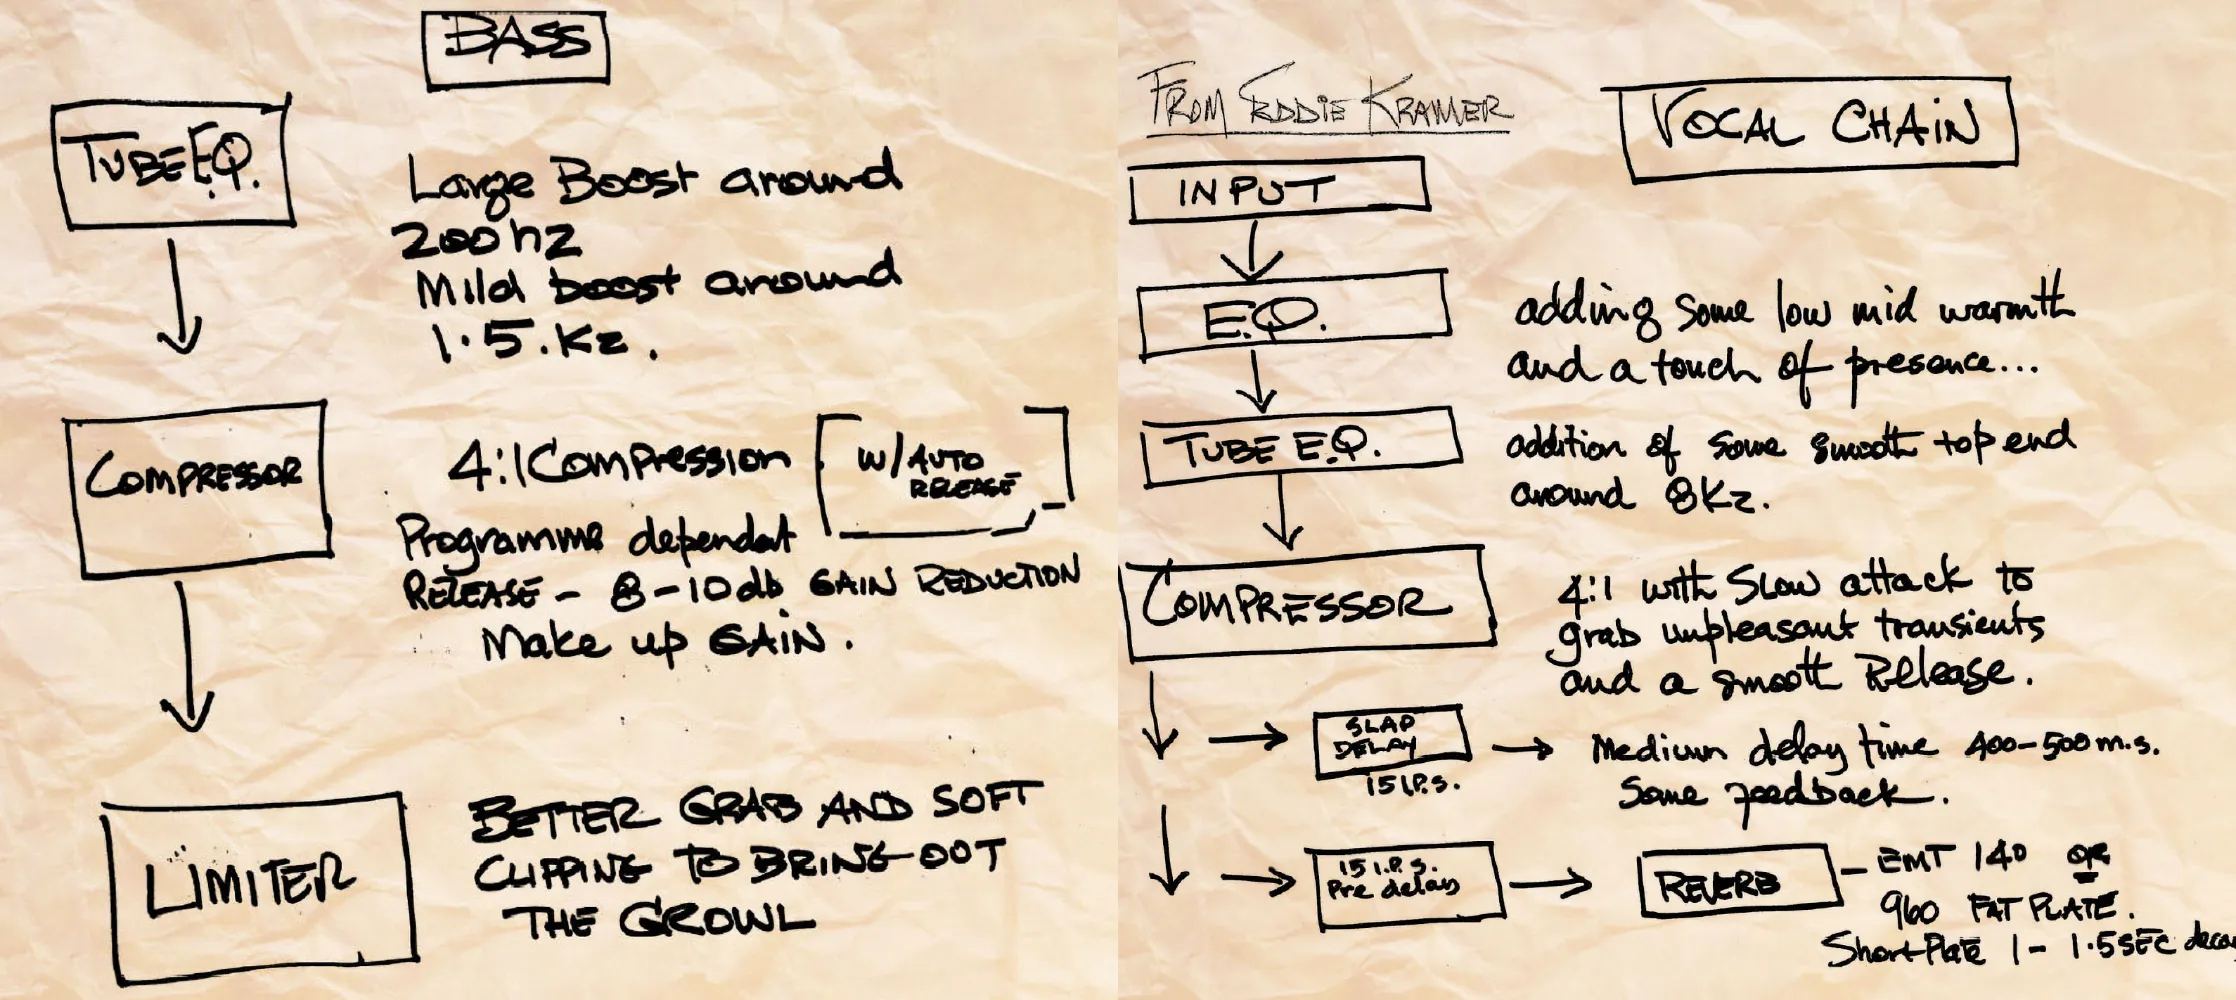 BASS
TUBE E.Q.
Large Boost around
200hz
Mild boost around
1.5.Kz.
COMPRESSOR
4:1 Compression
W/AUTO
RELEASE
Programme dependat
RELEASE - 8-10 db GAIN REDUCTION
Make up GAIN.
LIMITER
BETTER GRAB AND SOFT
CLIPPING TO BRING OUT
THE GROWL
FROM EDDIE KRAMER
VOCAL CHAIN
INPUT
E.Q.
adding some low mid warmth
and a touch of presence...
TUBE E.Q.
addition of some smooth top end
around 8Kz.
COMPRESSOR
4:1 with Slow attack to
grab unpleasant transients
and a smooth Release.
SLAP
DELAY
15 I.P.S.
Medium delay time 400-500 m.s.
Some feedback.
15 I.P.S.
Pre delay
REVERB
- EMT 140 OR
960 FAT PLATE.
Short Plate 1 - 1.5 SEC decay